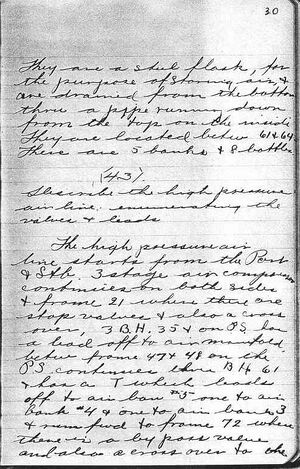 30
They are a steel flask, for
the purpose of storing air, &
are drained from the bottom
thru a pipe running down
from the top on the inside
They are located betw 61 & 64
There are 5 banks & 8 bottles
(43)
Describe the high pressure
air line, enumerating the
valves & leads
The high pressure air
line starts from the Port
& Stb. 3 stage air compressor
continues on both sides
& frame 21 where there are
stop valves & also a cross
over, 3 B.H. 35 & on P.S. has
a lead off to air manifold
betw frame 47 & 48 on the
P.S. continues thru B H 61
& has a T which leads
off to air ban #5 - one to air
bank #4 & one to air bank 3
& runs fwd to frame 72 where
there is a by pass valve
and also a cross over to the